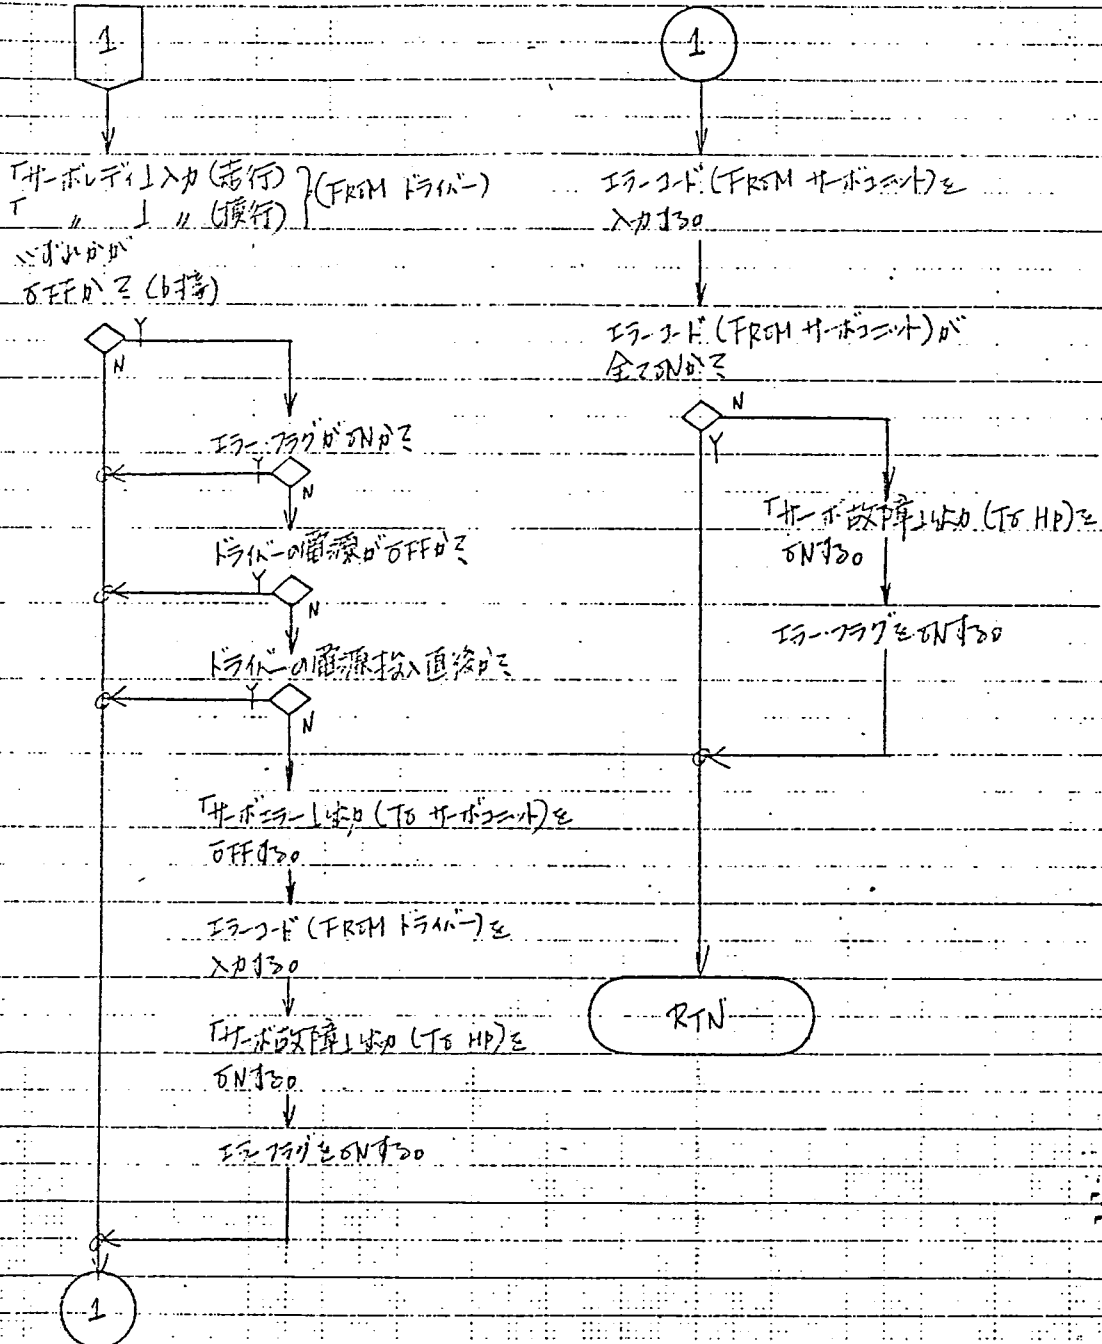 1
「サーボレディ」入力(走行)
「 〃 」 〃 (横行)
(FROM ドライバー)
いずれかが
OFFか? (b接)
Y
N
エラーフラグがONか?
Y
N
ドライバーの電源がOFFか?
Y
N
ドライバーの電源投入直後か?
Y
N
「サーボエラー」出力(TO サーボユニット)を
OFFする。
エラーコード(FROM ドライバー)を
入力する。
「サーボ故障」出力(TO HP)を
ONする。
エラーフラグをONする。
1
1
エラーコード(FROM サーボユニット)を
入力する。
エラーコード(FROM サーボユニット)が
全てONか?
N
Y
「サーボ故障」出力(TO HP)を
ONする。
エラーフラグをONする。
RTN